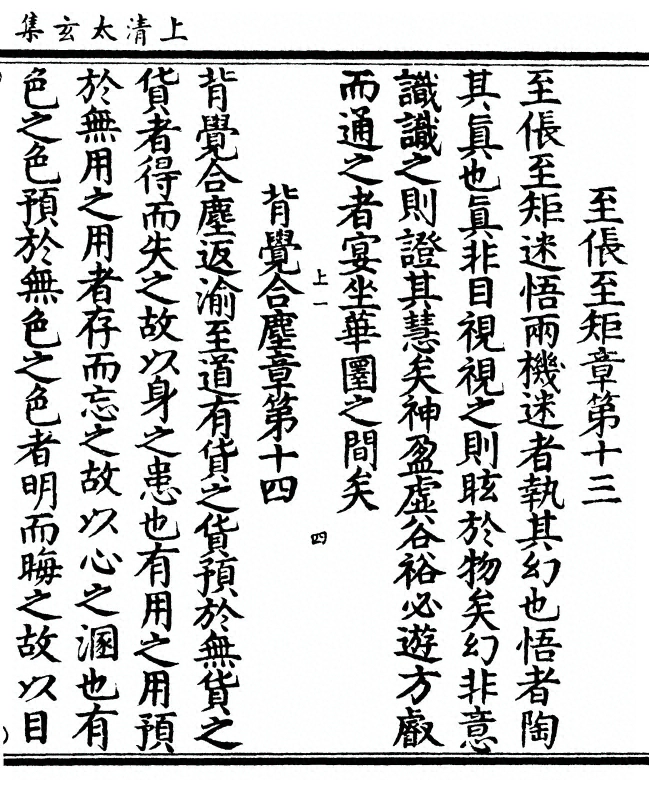 上清太玄集
至倀至矩章第十三
至倀至矩迷悟兩機迷者執其幻也悟者陶
其眞也眞非目視視之則眩於物矣幻非意
識識之則證其慧矣神盈虛谷裕必遊方叡
而通之者宴坐華圉之間矣
上一
四
背覺合塵章第十四
背覺合塵返渝至道有貨之貨預於無貨之
貨者得而失之故以身之患也有用之用預
於無用之用者存而忘之故以心之溷也有
色之色預於無色之色者明而晦之故以目